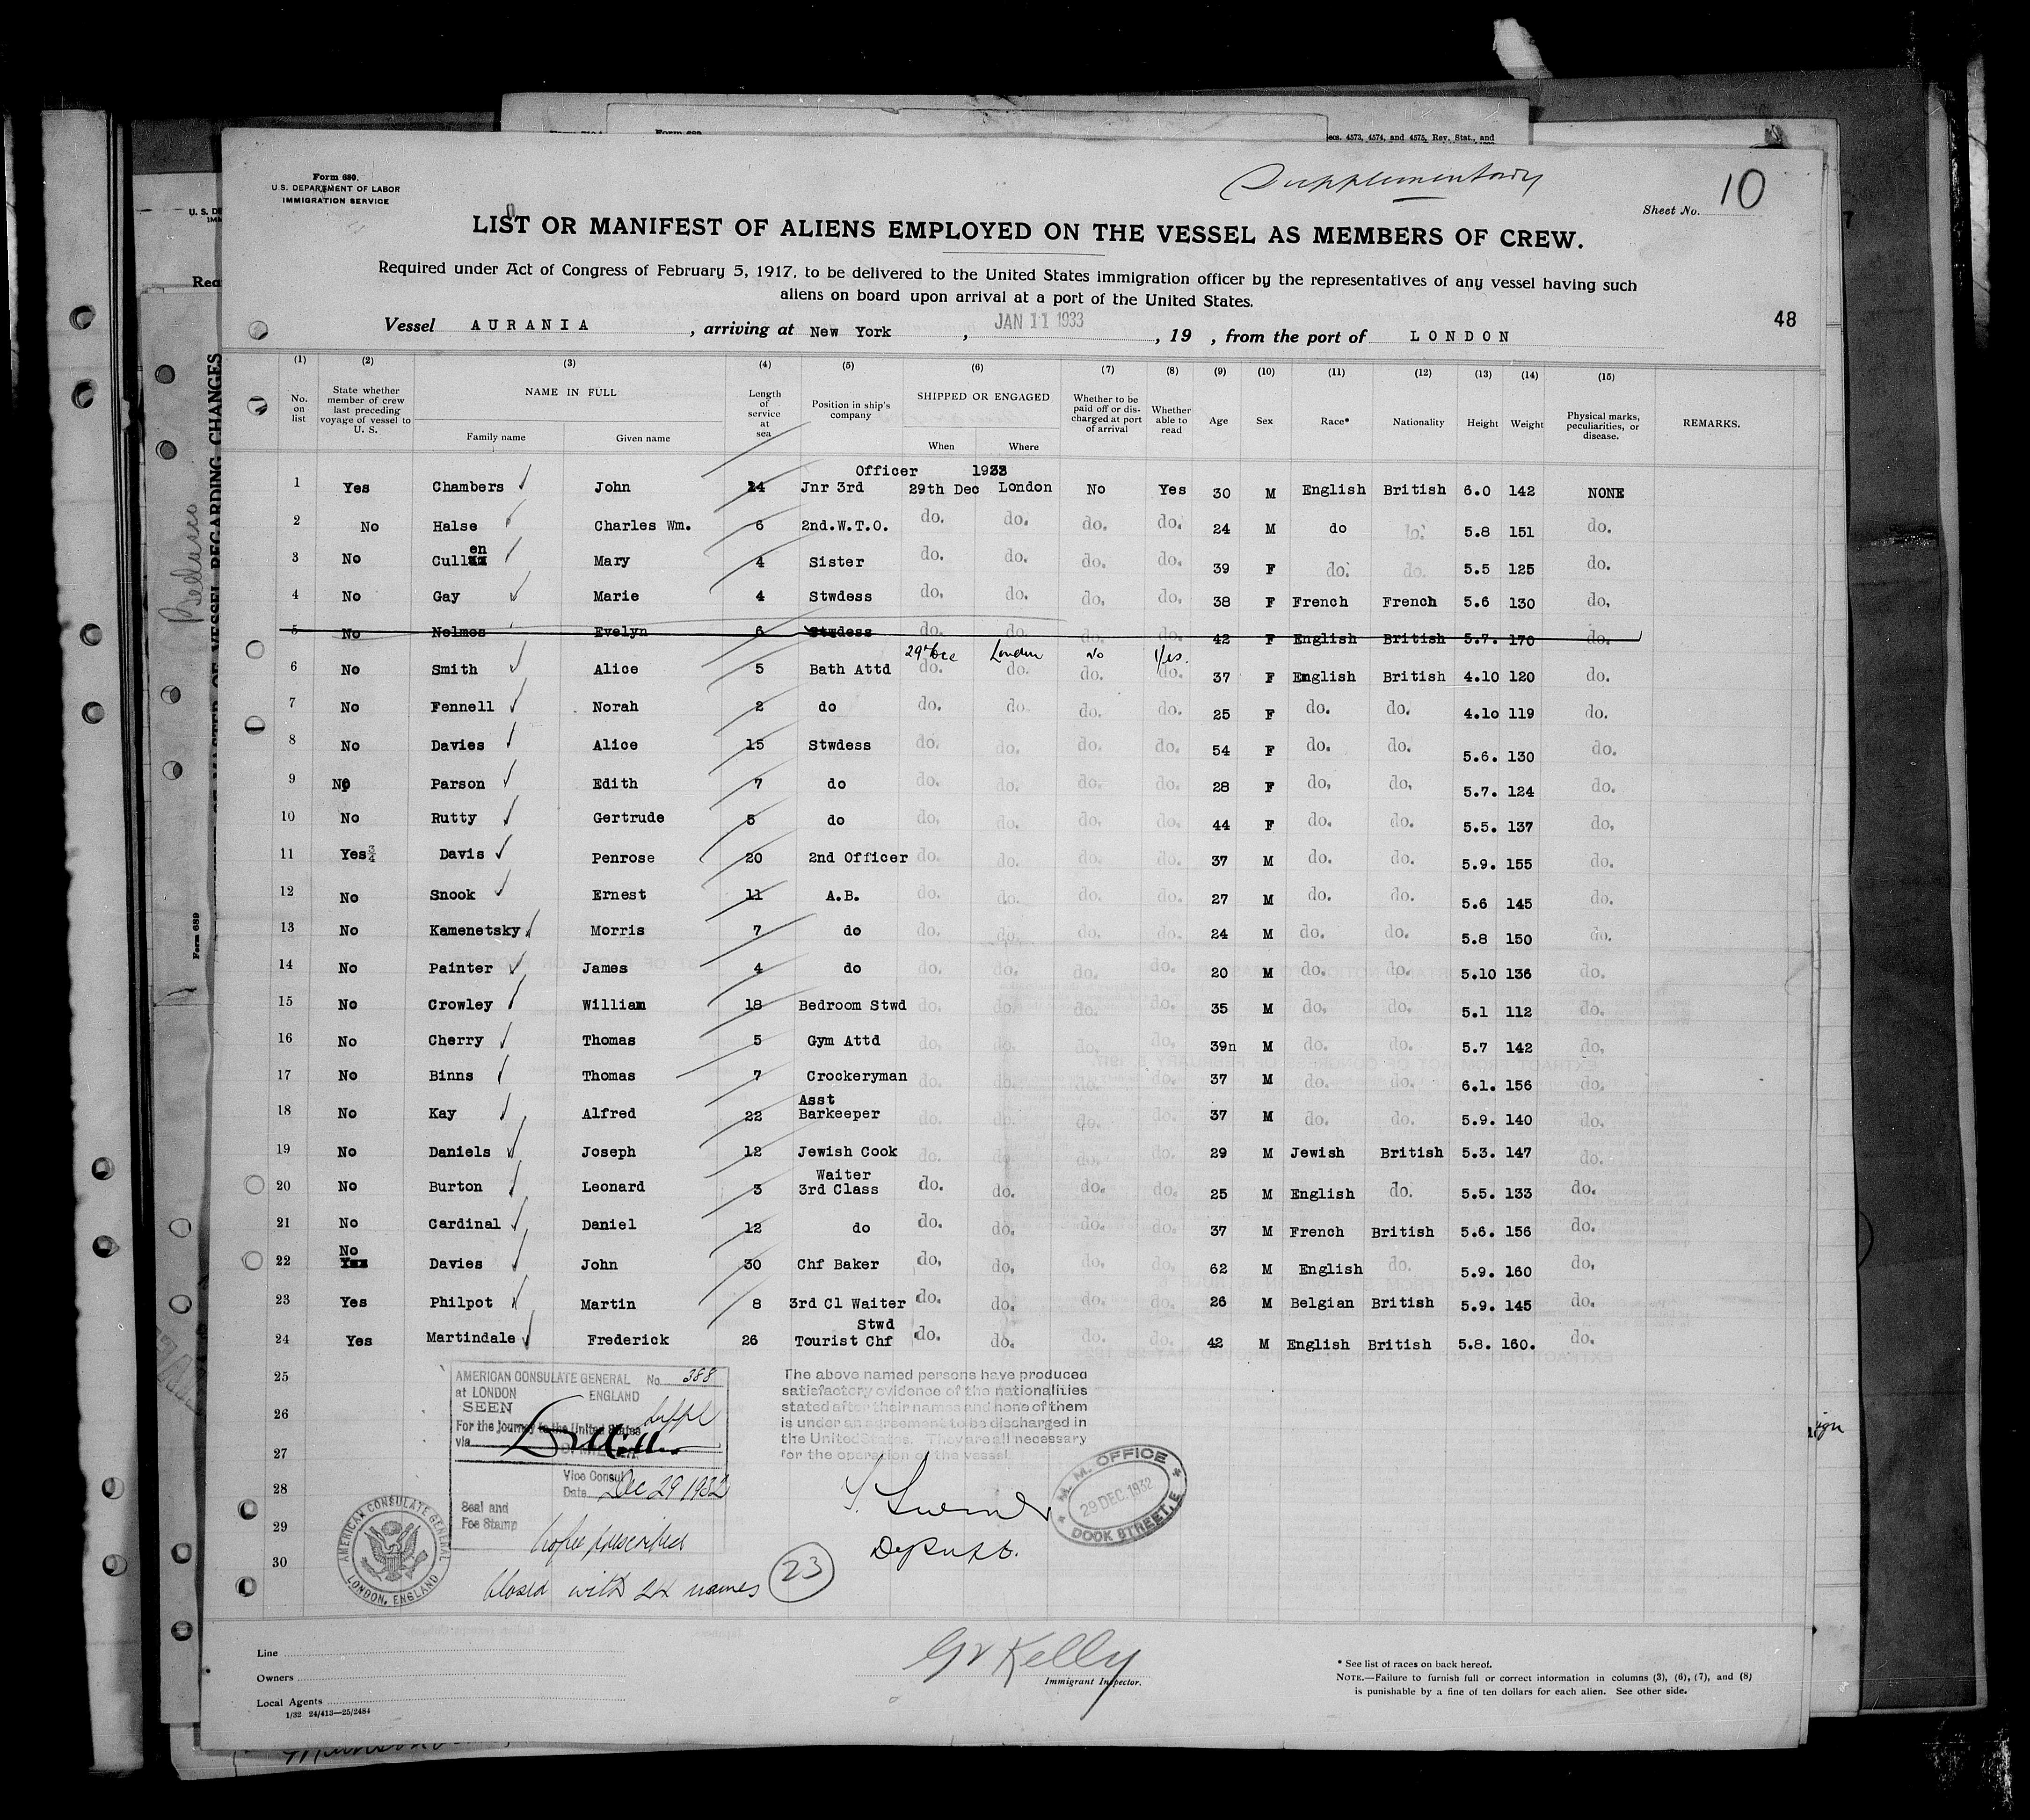 ecs. 4573, 4574, and 4575, Rev. Stat., and
Form 689
Form 680.
U.S. DEPARTMENT OF LABOR
IMMIGRATION SERVICE
Supplementary
Sheet No. 10
LIST OR MANIFEST OF ALIENS EMPLOYED ON THE VESSEL AS MEMBERS OF CREW.
Required under Act of Congress of February 5, 1917, to be delivered to the United States immigration officer by the representatives of any vessel having such
aliens on board upon arrival at a port of the United States.
Vessel AURANIA , arriving at New York , JAN 11 1933 , 19 , from the port of LONDON
48
(1) (2) (3) (4) (5) (6) (7) (8) (9) (10) (11) (12) (13) (14) (15)
No. on list State whether member of crew last preceding voyage of vessel to U. S. NAME IN FULL Family name Given name Length of service at sea Position in ship's company SHIPPED OR ENGAGED When Where Whether to be paid off or discharged at port of arrival Whether able to read Age Sex Race* Nationality Height Weight Physical marks, peculiarities, or disease. REMARKS.
Officer 1933
1 Yes Chambers John 14 Jnr 3rd 29th Dec London No Yes 30 M English British 6.0 142 NONE
2 No Halse Charles Wm. 6 2nd.W.T.O. do. do. do. do. 24 M do do. 5.8 151 do.
3 No Cullen Mary 4 Sister do. do. do. do. 39 F do. do. 5.5 125 do.
4 No Gay Marie 4 Stwdess do. do. do. do. 38 F French French 5.6 130 do.
5 No Nolmes Evelyn 6 Stwdess do. do. do. do. 42 F English British 5.7. 170 do.
29th Dec London No Yes.
6 No Smith Alice 5 Bath Attd do. do. do. do. 37 F English British 4.10 120 do.
7 No Fennell Norah 2 do do. do. do. do. 25 F do. do. 4.10 119 do.
8 No Davies Alice 15 Stwdess do. do. do. do. 54 F do. do. 5.6. 130 do.
9 No Parson Edith 7 do do. do. do. do. 28 F do. do. 5.7. 124 do.
10 No Rutty Gertrude 5 do do. do. do. do. 44 F do. do. 5.5. 137 do.
11 Yes Davis Penrose 20 2nd Officer do. do. do. do. 37 M do. do. 5.9. 155 do.
12 No Snook Ernest 11 A.B. do. do. do. do. 27 M do. do. 5.6 145 do.
13 No Kamenetsky Morris 7 do do. do. do. do. 24 M do. do. 5.8 150 do.
14 No Painter James 4 do do. do. do. do. 20 M do. do. 5.10 136 do.
15 No Crowley William 18 Bedroom Stwd do. do. do. do. 35 M do. do. 5.1 112 do.
16 No Cherry Thomas 5 Gym Attd do. do. do. do. 39n M do. do. 5.7 142 do.
17 No Binns Thomas 7 Crockeryman do. do. do. do. 37 M do. do. 6.1. 156 do.
Asst
18 No Kay Alfred 22 Barkeeper do. do. do. do. 37 M do. do. 5.9. 140 do.
19 No Daniels Joseph 12 Jewish Cook do. do. do. do. 29 M Jewish British 5.3. 147 do.
Waiter
20 No Burton Leonard 3 3rd Class do. do. do. do. 25 M English do. 5.5. 133 do.
21 No Cardinal Daniel 12 do do. do. do. do. 37 M French British 5.6. 156 do.
No
22 Yes Davies John 30 Chf Baker do. do. do. do. 62 M English do. 5.9. 160 do.
23 Yes Philpot Martin 8 3rd Cl Waiter do. do. do. do. 26 M Belgian British 5.9. 145 do.
Stwd
24 Yes Martindale Frederick 26 Tourist Chf do. do. do. do. 42 M English British 5.8. 160. do.
25
26
27
28
29
30
AMERICAN CONSULATE GENERAL No. 388
at LONDON ENGLAND
SEEN
For the journey to the United States
via
Vice Consul
Date Dec 29 1932
Seal and
Fee Stamp
No fee prescribed
closed with 24 names
23
AMERICAN CONSULATE GENERAL
LONDON, ENGLAND
The above named persons have produced
satisfactory evidence of the nationalities
stated after their names and none of them
is under an agreement to be discharged in
the United States. They are all necessary
for the operation of the vessel
Dy Supt.
M. M. OFFICE
29 DEC. 1932
DOCK STREET, E.
Line
Owners
Local Agents
1/32 24/413—25/2484
Gv Kelly
Immigrant Inspector.
* See list of races on back hereof.
NOTE.—Failure to furnish full or correct information in columns (3), (6), (7), and (8)
is punishable by a fine of ten dollars for each alien. See other side.
OF MASTER OF VESSEL REGARDING CHANGES
Form 689